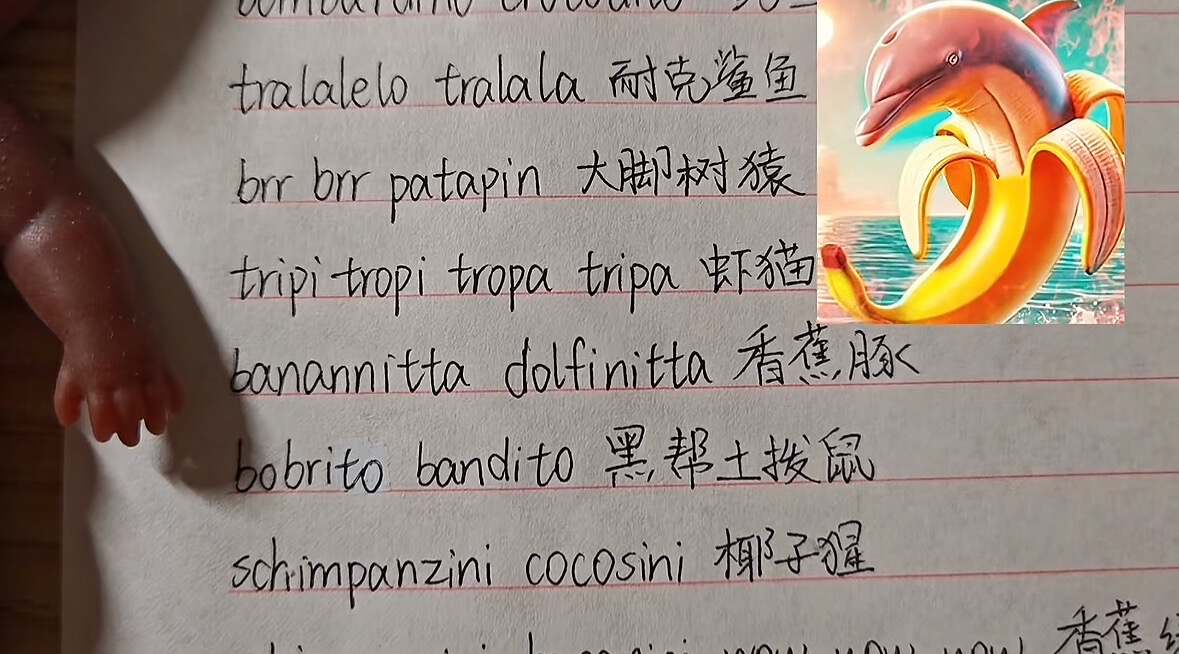 tralalelo tralala 耐克鲨鱼
brr brr patapin 大脚树猿
tripi tropi tropa tripa 虾猫
banannitta dolfinitta 香蕉豚
bobrito bandito 黑帮土拨鼠
schimpanzini cocosini 椰子猩
香蕉